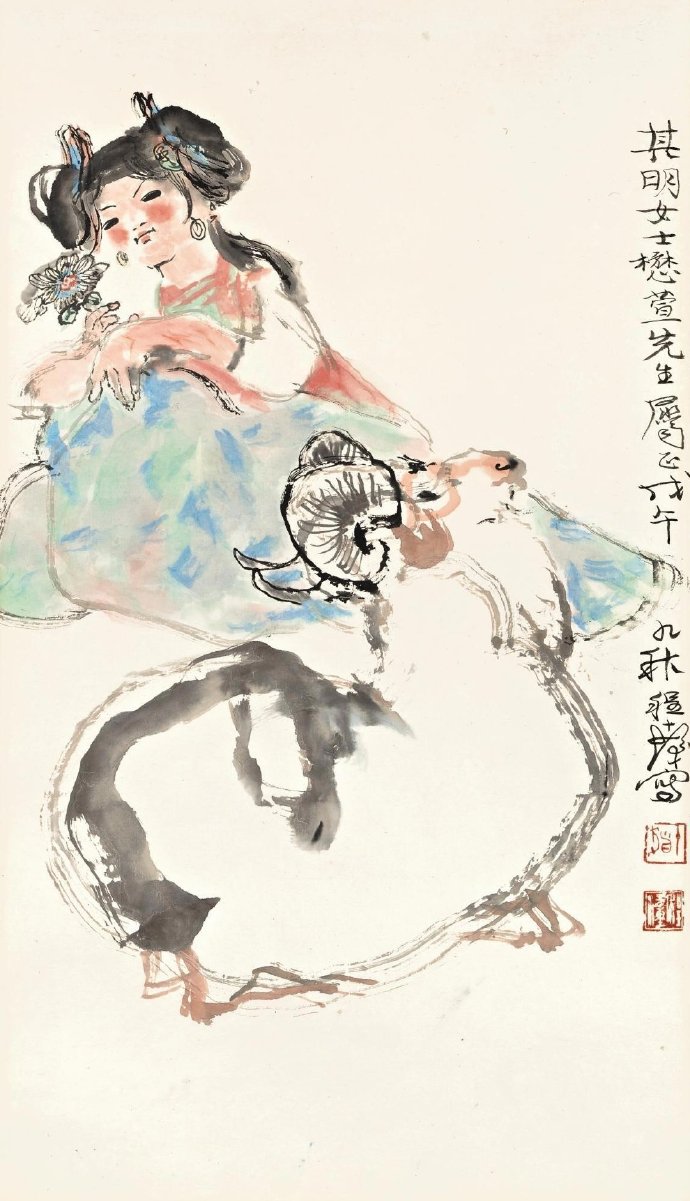 其明女士懋萱先生属正戊午
九秋程十髮写